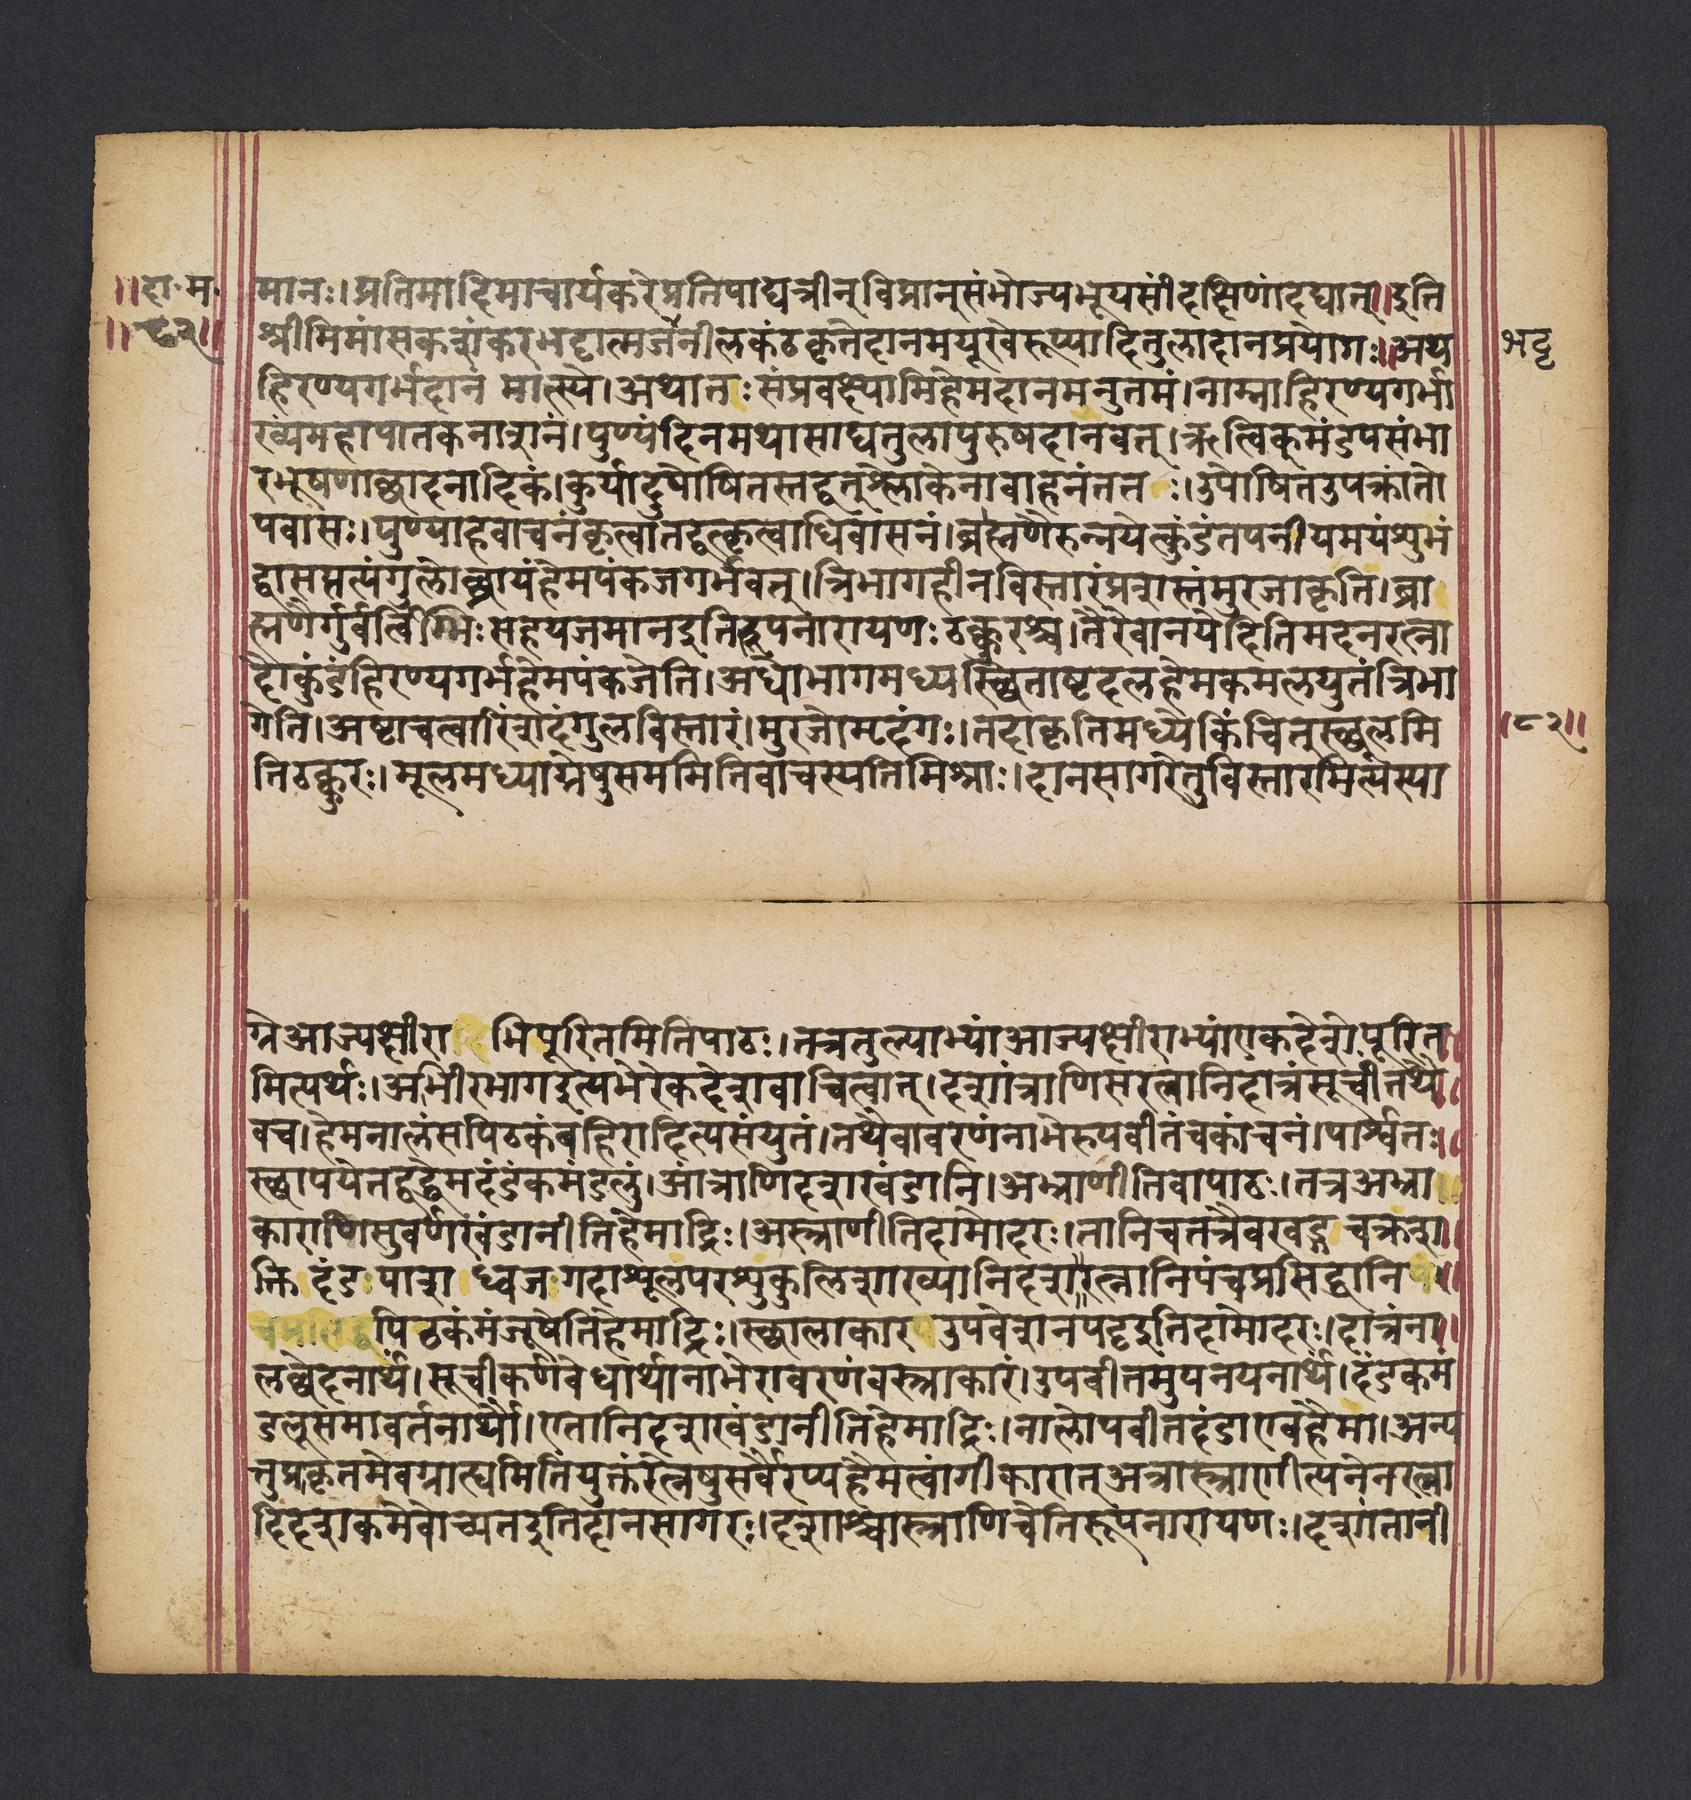 ॥दा॰म॰
॥८२॥
मानः। प्रतिमादिमाचार्यकरेप्रतिपाद्यत्रीन्विप्रान्संभोज्यभूयसींदक्षिणांदद्यात्॥इति
श्रीमिमांसकशंकरभट्टात्मजनीलकंठकृतेदानमयूखेरूप्यादितुलादानप्रयोगः॥अथ
भट्ट
हिरण्यगर्भदानं मात्स्ये।अथातःसंप्रवक्ष्यामिहेमदानमनुतमं।नाम्नाहिरण्यगर्भा
ख्यंमहापातकनाशनं।पुण्यंदिनमथासाद्यतुलापुरुषदानवत्।ऋत्विक्मंडपसंभा
रभूषणाछादनादिकं।कुर्यादुपोषितस्तद्वत्श्लोकेनावाहनंततः।उपोषितउपक्रांतो
पवासः।पुण्याहवाचनंकृत्वातद्वत्कृत्वाधिवासनं।ब्रह्मणैरुन्नयेत्कुंडंतपनीयमयंश्युभं
द्वासप्तत्यंगुलोछ्रायंहेमपंकजगर्भवत्।त्रिभागहीनविस्तारंप्रशस्तंमुरजाकृति।ब्रा
ह्मणैर्गुर्वर्त्विग्भिःसहयजमानइतिरूपनारायणःठक्कुरश्च।तैरेवानयेदितिमदनरत्ना
दौकुंडंहिरण्यगर्भहेमपंकजेति।अधोभागमध्यस्छिताष्टदलहेमकमलयुतंत्रिभा
गेति।अष्टाचत्वारिंशदंगुलविस्तारं।मुरजोमृदंगः।तदाकृतिमध्येकिंचित्स्छूलमि
॥८२॥
तिठक्कुरः।मूलमध्याग्रेषुसममितिवाचस्पतिमिश्राः।दानसागरेतुविस्तारमित्यस्पा
ग्रेआज्यक्षीराभिपूरितमितिपाठः।तत्रतुल्याभ्यांआज्यक्षीराभ्यांएकदेशेपूरित
मित्यर्थः।अभीरभागइत्यभेरेकदेशवाचित्वात्।दशांत्राणिसरत्नानिदात्रंसूचींतथै
वच।हेमनालंसपिठकंबहिरादित्यसंयुतं।तथैवावरणंनाभेरुपवीतंचकांचनं।पार्श्वतः
स्छापयेतद्वद्धेमदंडंकमंडलुं।आंत्राणिदशखंडानि।अभ्राणीतिवापाठः।तत्रअभ्रा
काराणिसुवर्णखंडानीतिहेमाद्रिः।अस्त्राणीतिदामोदरः।तानिचतत्रैवखड्गचक्रश
क्ति दंड पाश ध्वज गदाश्यूलपरश्युकुलिशाख्यानिदशरत्नानिपंचप्रसिद्धानिपं
चप्रसिद्धपिठकंमंजूषेतिहेमाद्रिः।स्छालाकारउपवेशनपट्टइतिदामोदरः।दात्रंना
लछेदनार्थं।सूचीकर्णवेधार्थानाभेरावरणंवस्त्राकारं।उपवीतमुपनयनार्थं।दंडकम
डलूसमावर्तनार्थौ।एतानिदशखंडानीतिहेमाद्रिः।नालोपवीतदंडाएवहैमा।अन्य
त्तुप्रकृतमेवग्राह्यमितियुक्तंरत्नेषुसर्वैरप्यहैमत्वांगीकारात्अत्रास्त्राणीत्यनेनरत्ना
दिदशकमेवोच्यतइतिदानसागरः।दशाश्चास्त्राणिचेतिरूपनारायणः।दशांतानी